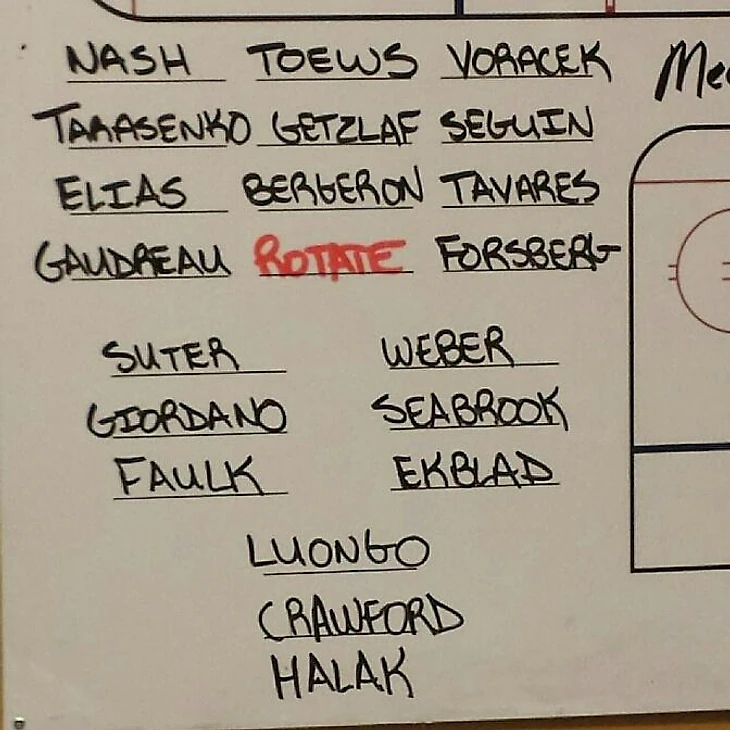 NASH TOEWS VORACEK
TARASENKO GETZLAF SEGUIN
ELIAS BERGERON TAVARES
GAUDREAU ROTATE FORSBERG
SUTER WEBER
GIORDANO SEABROOK
FAULK EKBLAD
LUONGO
CRAWFORD
HALAK